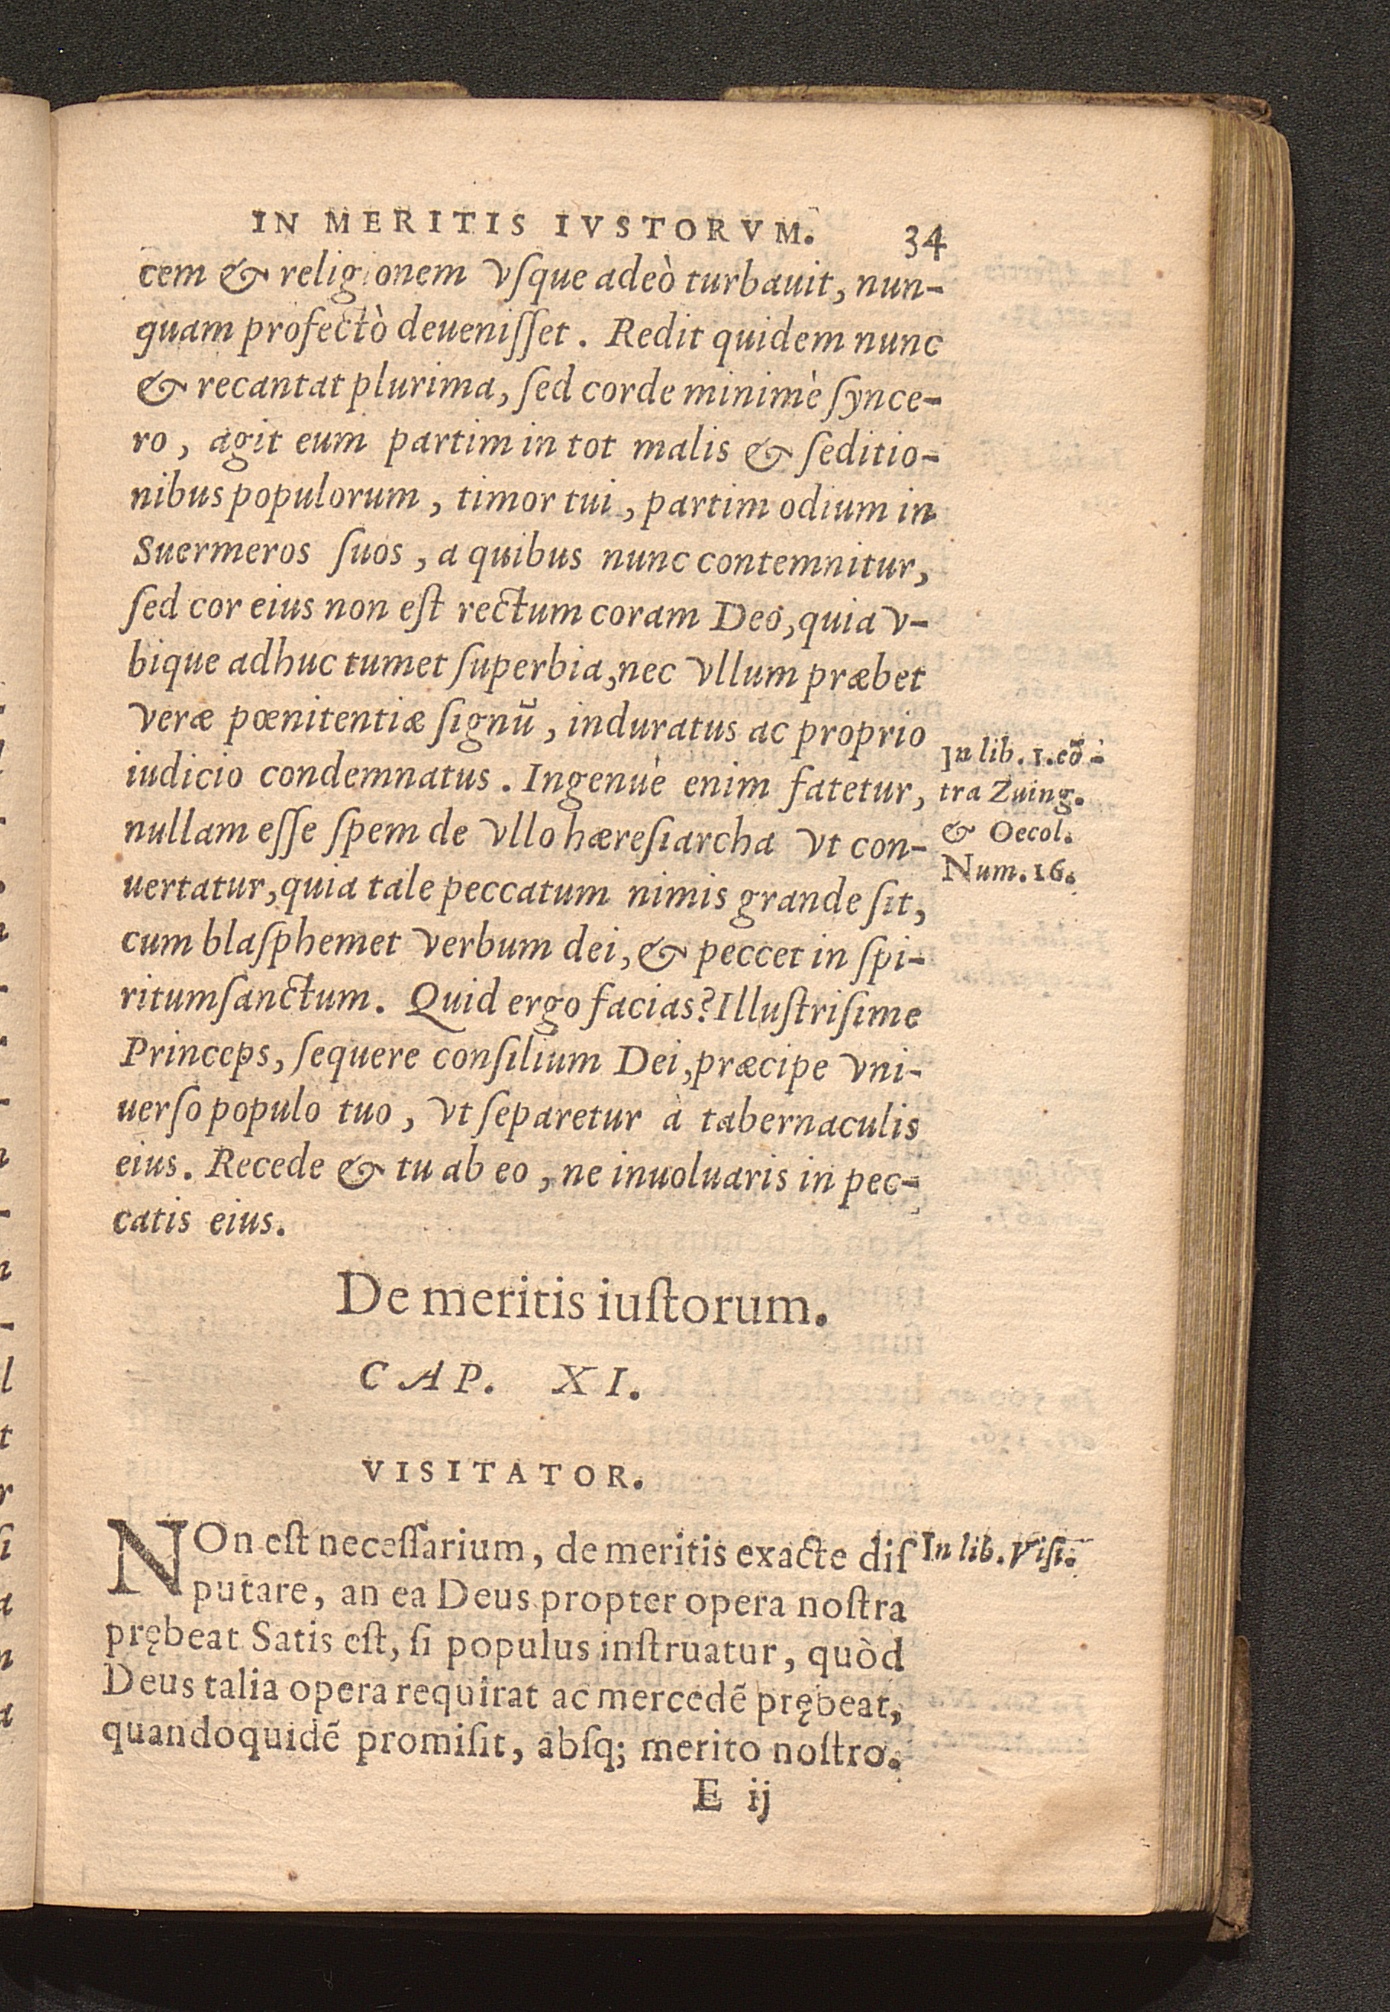 IN MERITIS IVSTORVM. 34
cem & religionem vſque adeò turbauit, nun-
quam profectò deueniſſet. Redit quidem nunc
& recantat plurima, ſed corde minimè ſynce-
ro, agit eum partim in tot malis & ſeditio-
nibus populorum, timor tui, partim odium in
Suermeros ſuos, a quibus nunc contemnitur,
ſed cor eius non eſt rectum coram Deo, quia v-
bique adhuc tumet ſuperbia, nec vllum præbet
veræ pœnitentiæ ſignũ, induratus ac proprio
iudicio condemnatus. Ingenuè enim fatetur,
nullam eſſe ſpem de vllo hæreſiarcha vt con-
uertatur, quia tale peccatum nimis grande ſit,
cum blaſphemet verbum dei, & peccet in ſpi-
ritumſanctum. Quid ergo facias? Illuſtriſime
Princeps, ſequere conſilium Dei, præcipe vni-
uerſo populo tuo, vt ſeparetur à tabernaculis
eius. Recede & tu ab eo, ne inuoluaris in pec-
catis eius.
In lib. 1. cõ-
tra Zuing.
& Oecol.
Num. 16.
De meritis iuſtorum.
CAP. XI.
VISITATOR.
NOn eſt neceſſarium, de meritis exacte diſ
putare, an ea Deus propter opera noſtra
prębeat Satis eſt, ſi populus inſtruatur, quòd
Deus talia opera requirat ac mercedẽ prębeat,
quandoquidẽ promiſit, abſq; merito noſtro.
In lib. Viſi.
E ij